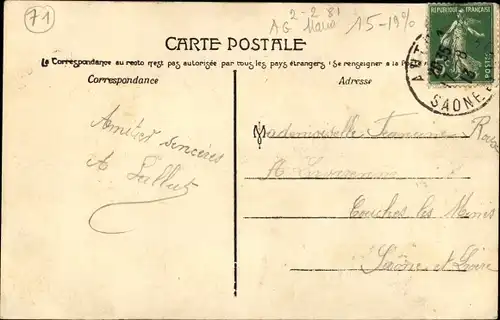 71
2-2 81
A G
15-19%
CARTE POSTALE
La Correspondance au recto n'est pas autorisée par tous les pays étrangers (Se renseigner à la Poste)
Correspondance
Adresse
RÉPUBLIQUE FRANÇAISE
POSTES
SAONE
Amitiés sincères
Mademoiselle Francine
A
Couches les Mines
Saône et Loire